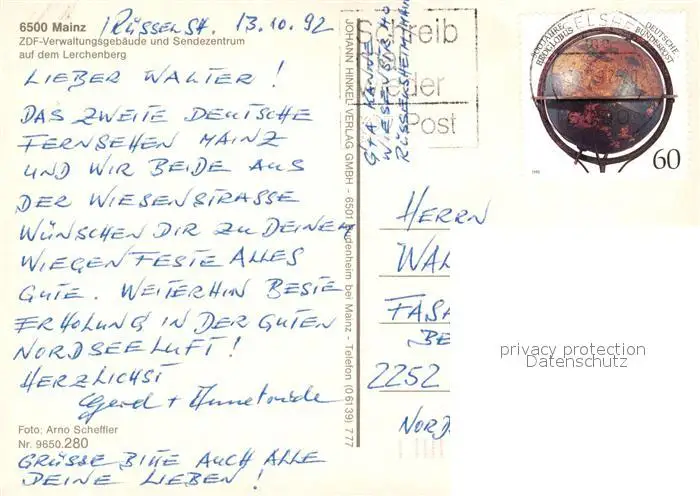 6500 Mainz
ZDF-Verwaltungsgebäude und Sendezentrum
auf dem Lerchenberg
RÜSSELSH. 13.10.92
LIEBER WALTER!
DAS ZWEITE DEUTSCHE
FERNSEHEN MAINZ
UND WIR BEIDE AUS
DER WIESENSTRASSE
WÜNSCHEN DIR ZU DEINEM
WIEGENFESTE ALLES
GUTE. WEITERHIN BESTE
ERHOLUNG IN DER GUTEN
NORDSEELUFT!
HERZLICHST
Gerd + Annetraude
Foto: Arno Scheffler
Nr. 9650.280
GRÜSSE BITTE AUCH ALLE
DEINE LIEBEN!
JOHANN HINKEL VERLAG GMBH - 6501 Budenheim bei Mainz - Telefon (06139) 777
Schreib
wieder
Post
KANNE
WIESENSTR. 40
RÜSSELSHEIM/MAIN
500 JAHRE
ERDGLOBUS
DEUTSCHE
BUNDESPOST
1992
60
HERRN
WAL
FASA
BE
2252
NORD
privacy protection
Datenschutz